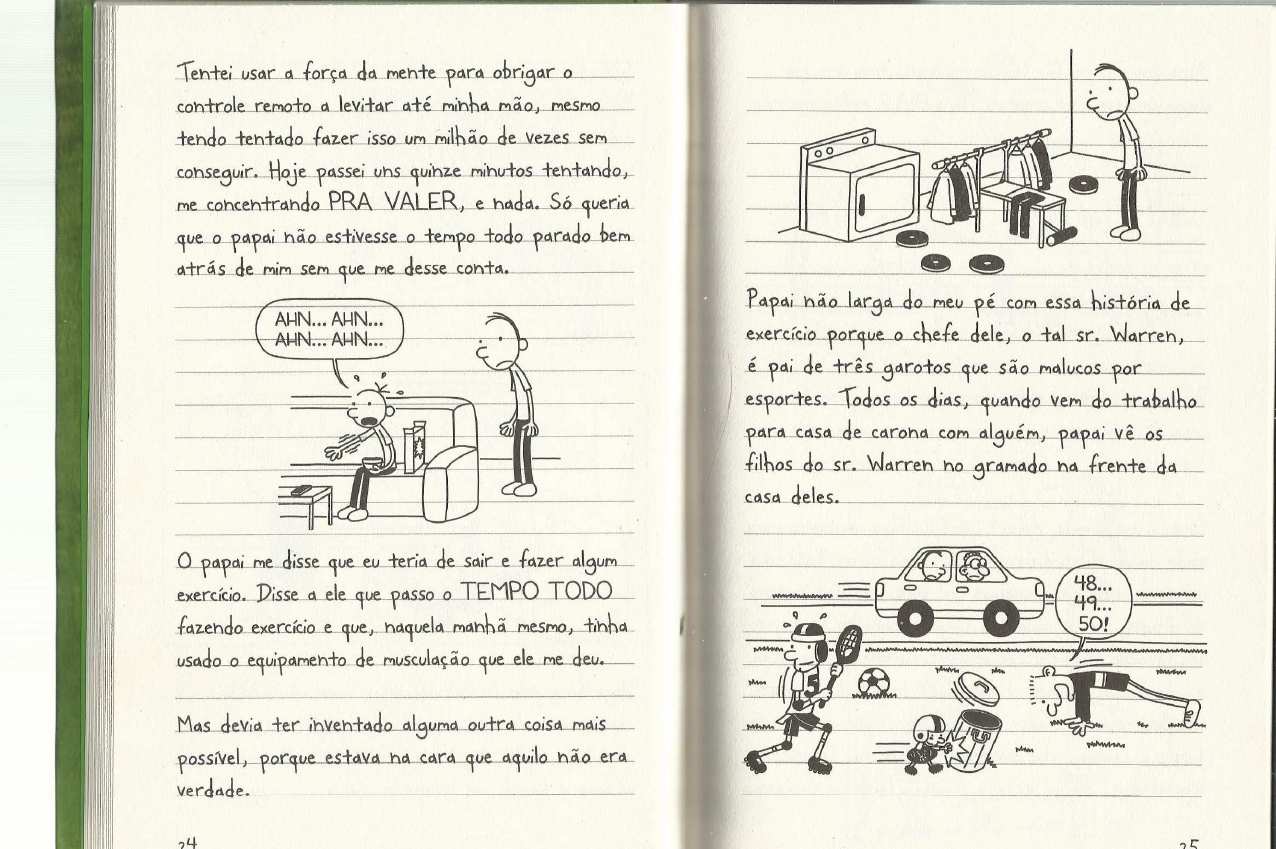 Tentei usar a força da mente para obrigar o
controle remoto a levitar até minha mão, mesmo
tendo tentado fazer isso um milhão de vezes sem
conseguir. Hoje passei uns quinze minutos tentando,
me concentrando PRA VALER, e nada. Só queria
que o papai não estivesse o tempo todo parado bem
atrás de mim sem que me desse conta.
AHN... AHN...
AHN... AHN...
O papai me disse que eu teria de sair e fazer algum
exercício. Disse a ele que passo o TEMPO TODO
fazendo exercício e que, naquela manhã mesmo, tinha
usado o equipamento de musculação que ele me deu.
Mas devia ter inventado alguma outra coisa mais
possível, porque estava na cara que aquilo não era
verdade.
24
Papai não larga do meu pé com essa história de
exercício porque o chefe dele, o tal sr. Warren,
é pai de três garotos que são malucos por
esportes. Todos os dias, quando vem do trabalho
para casa de carona com alguém, papai vê os
filhos do sr. Warren no gramado na frente da
casa deles.
48...
49...
50!
5
25